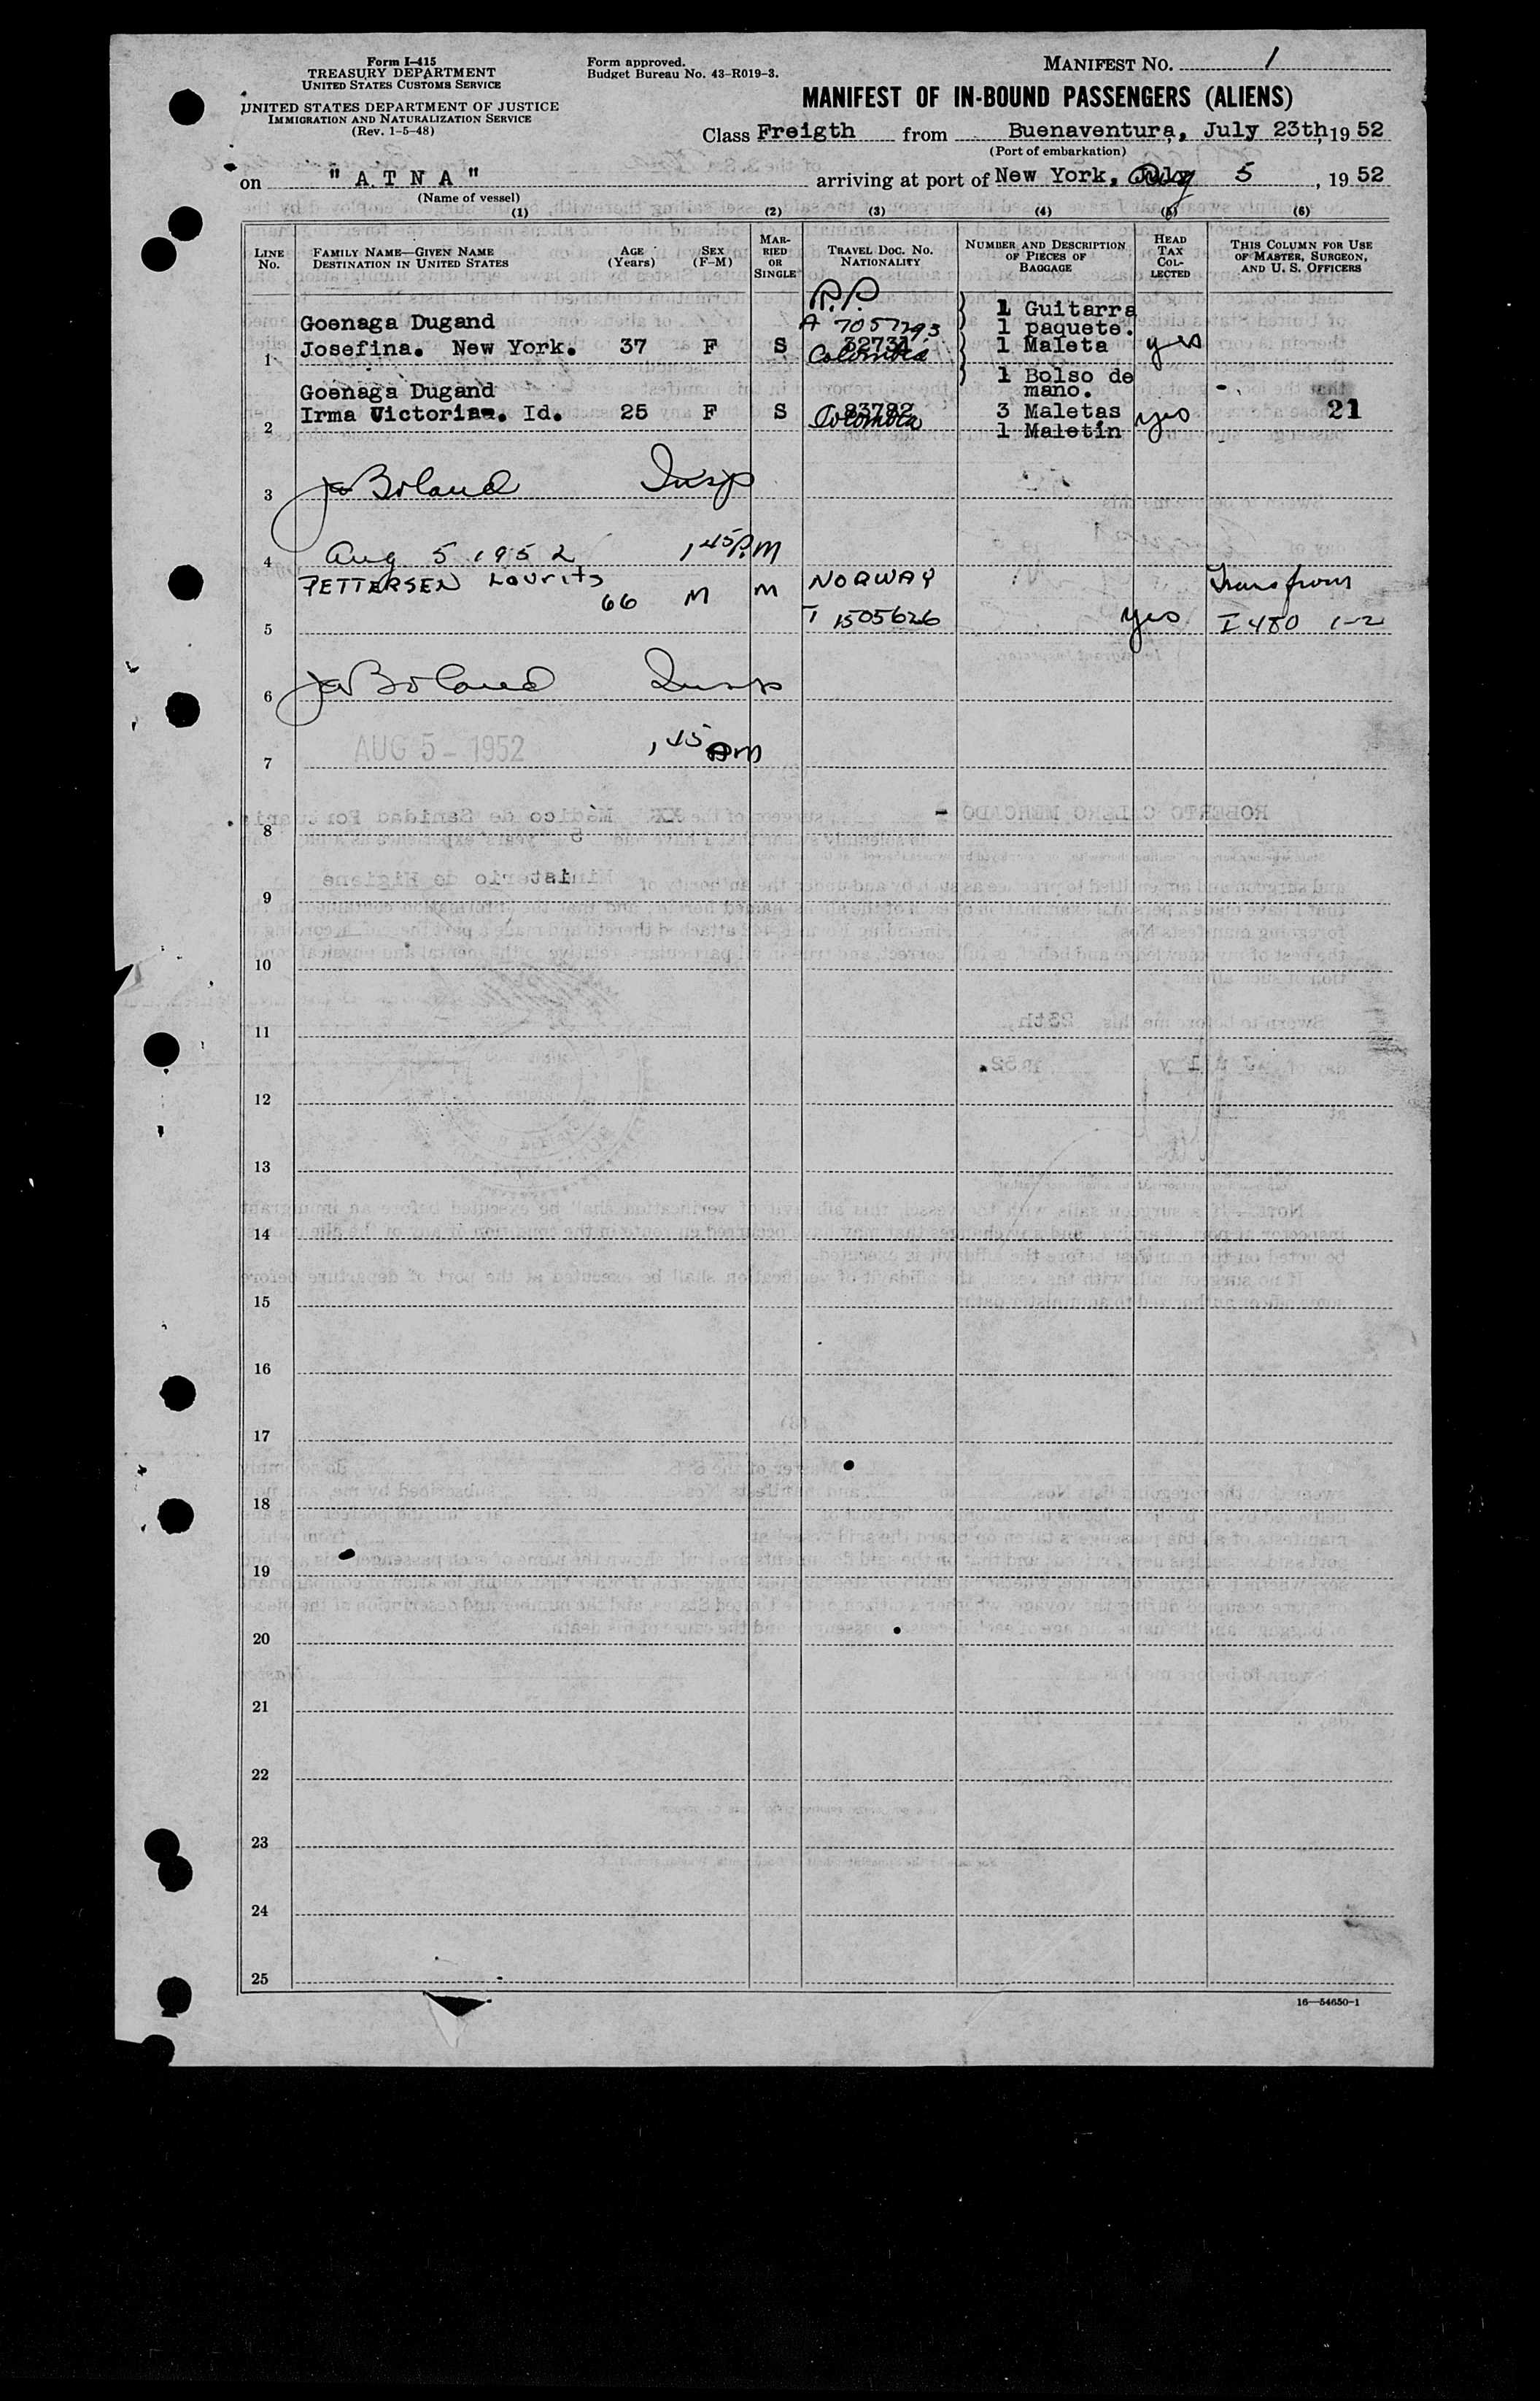 Form I-415
TREASURY DEPARTMENT
UNITED STATES CUSTOMS SERVICE
UNITED STATES DEPARTMENT OF JUSTICE
IMMIGRATION AND NATURALIZATION SERVICE
(Rev. 1-5-48)
Form approved.
Budget Bureau No. 43-R019-3.
MANIFEST NO. 1
MANIFEST OF IN-BOUND PASSENGERS (ALIENS)
Class Freigth from Buenaventura, July 23th, 1952
(Port of embarkation)
on "ATNA" arriving at port of New York, Aug 5, 1952
(Name of vessel)
(1) (2) (3) (4) (5) (6)
LINE No.
FAMILY NAME—GIVEN NAME
DESTINATION IN UNITED STATES
AGE (Years)
SEX (F-M)
MARRIED OR SINGLE
TRAVEL DOC. NO.
NATIONALITY
NUMBER AND DESCRIPTION OF PIECES OF BAGGAGE
HEAD TAX COLLECTED
THIS COLUMN FOR USE OF MASTER, SURGEON, AND U. S. OFFICERS
P.P.
Goenaga Dugand A 7057293 1 Guitarra
1 paquete.
1 Josefina. New York. 37 F S 32731 Colombia 1 Maleta yes
1 Bolso de mano.
Goenaga Dugand
2 Irma Victoria. Id. 25 F S 83782 Colombia 3 Maletas yes 21
1 Maletin
3 Boland Insp
4 Aug 5 1952 1 45 P.M
PETTERSEN Laurits 66 M M NORWAY Trans from
5 T 1505626 yes I 480 1-2
6 Boland Insp
7 AUG 5 - 1952 1 45 PM
8
9
10
11
12
13
14
15
16
17
18
19
20
21
22
23
24
25
16—54650-1